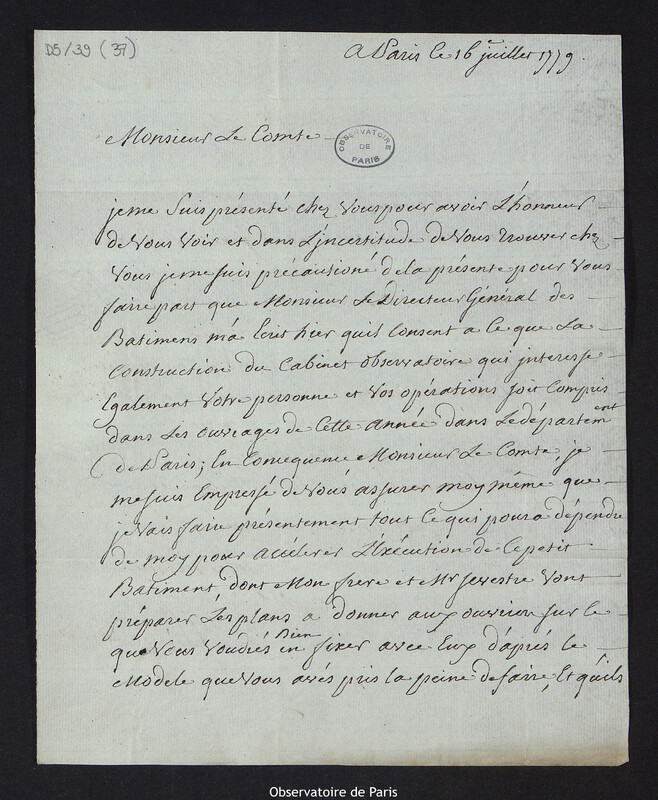 D5/39 (37)
A Paris Ce 16 juillet 1779.
Monsieur Le Comte
OBSERVATOIRE
DE
PARIS
je me suis présenté chez Vous pour avoir L'honneur
de Vous Voir et dans L'jncertitude de Vous trouver chez
Vous je me suis précautioné de la présente pour Vous
faire part que Monsieur Le Directeur Général des
Batimens m'a Ecrit hier quil Consent a Ce que La
Construction du Cabinet observatoire qui interesse
Egalement Votre personne et Vos opérations soit Compris
dans Les ouvrages de Cette année dans Le départem ent
de Paris; En Consequence Monsieur Le Comte, je
me suis Empressé de Vous assurer moy même que
je Vais faire présentement tout Ce qui poura dépendre
de moy pour accélérer L'Exécution de Ce petit
Batiment, dont Mon frere et Mr Jevestre Vont
préparer Les plans a donner aux ouvriers sur Ce
que Vous Voudrés Bien en fixer avec Eux d'aprés le
Modele que Vous avés pris La peine de faire, Et qu'ils
Observatoire de Paris